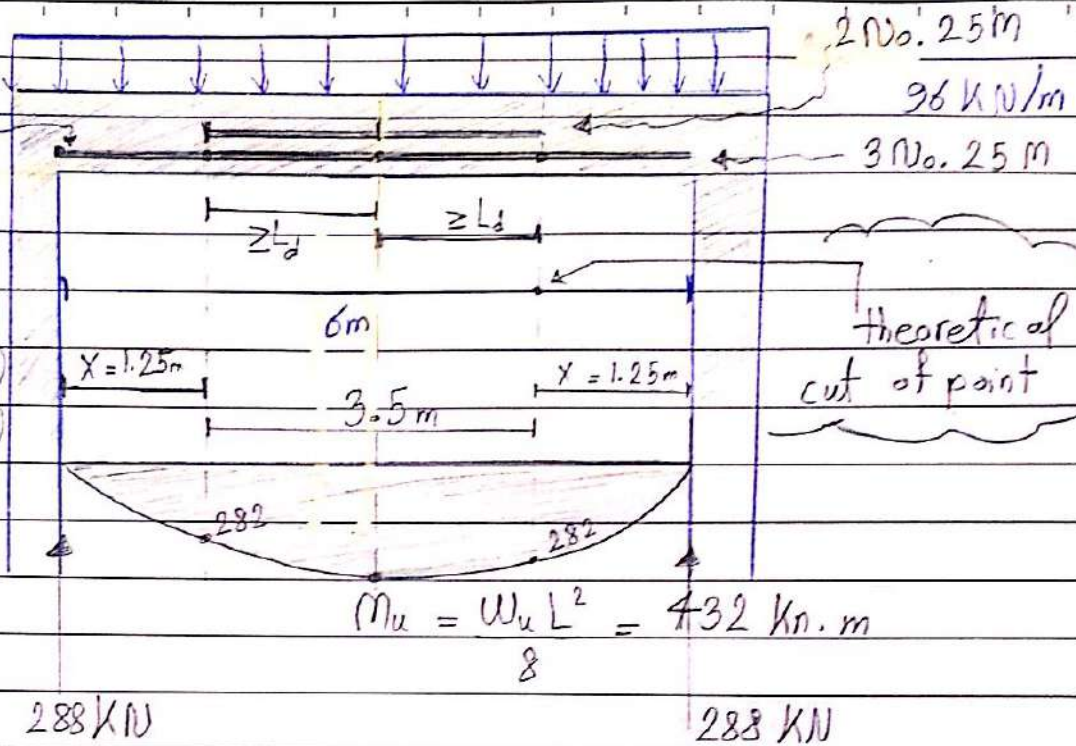 2 No. 25M
96 KN/m
3 No. 25 M
≥Ld
≥Ld
6m
theoretical
cut of point
X = 1.25m
X = 1.25m
3.5m
282
282
Mu = Wu L² / 8 = 432 Kn.m
288 KN
288 KN